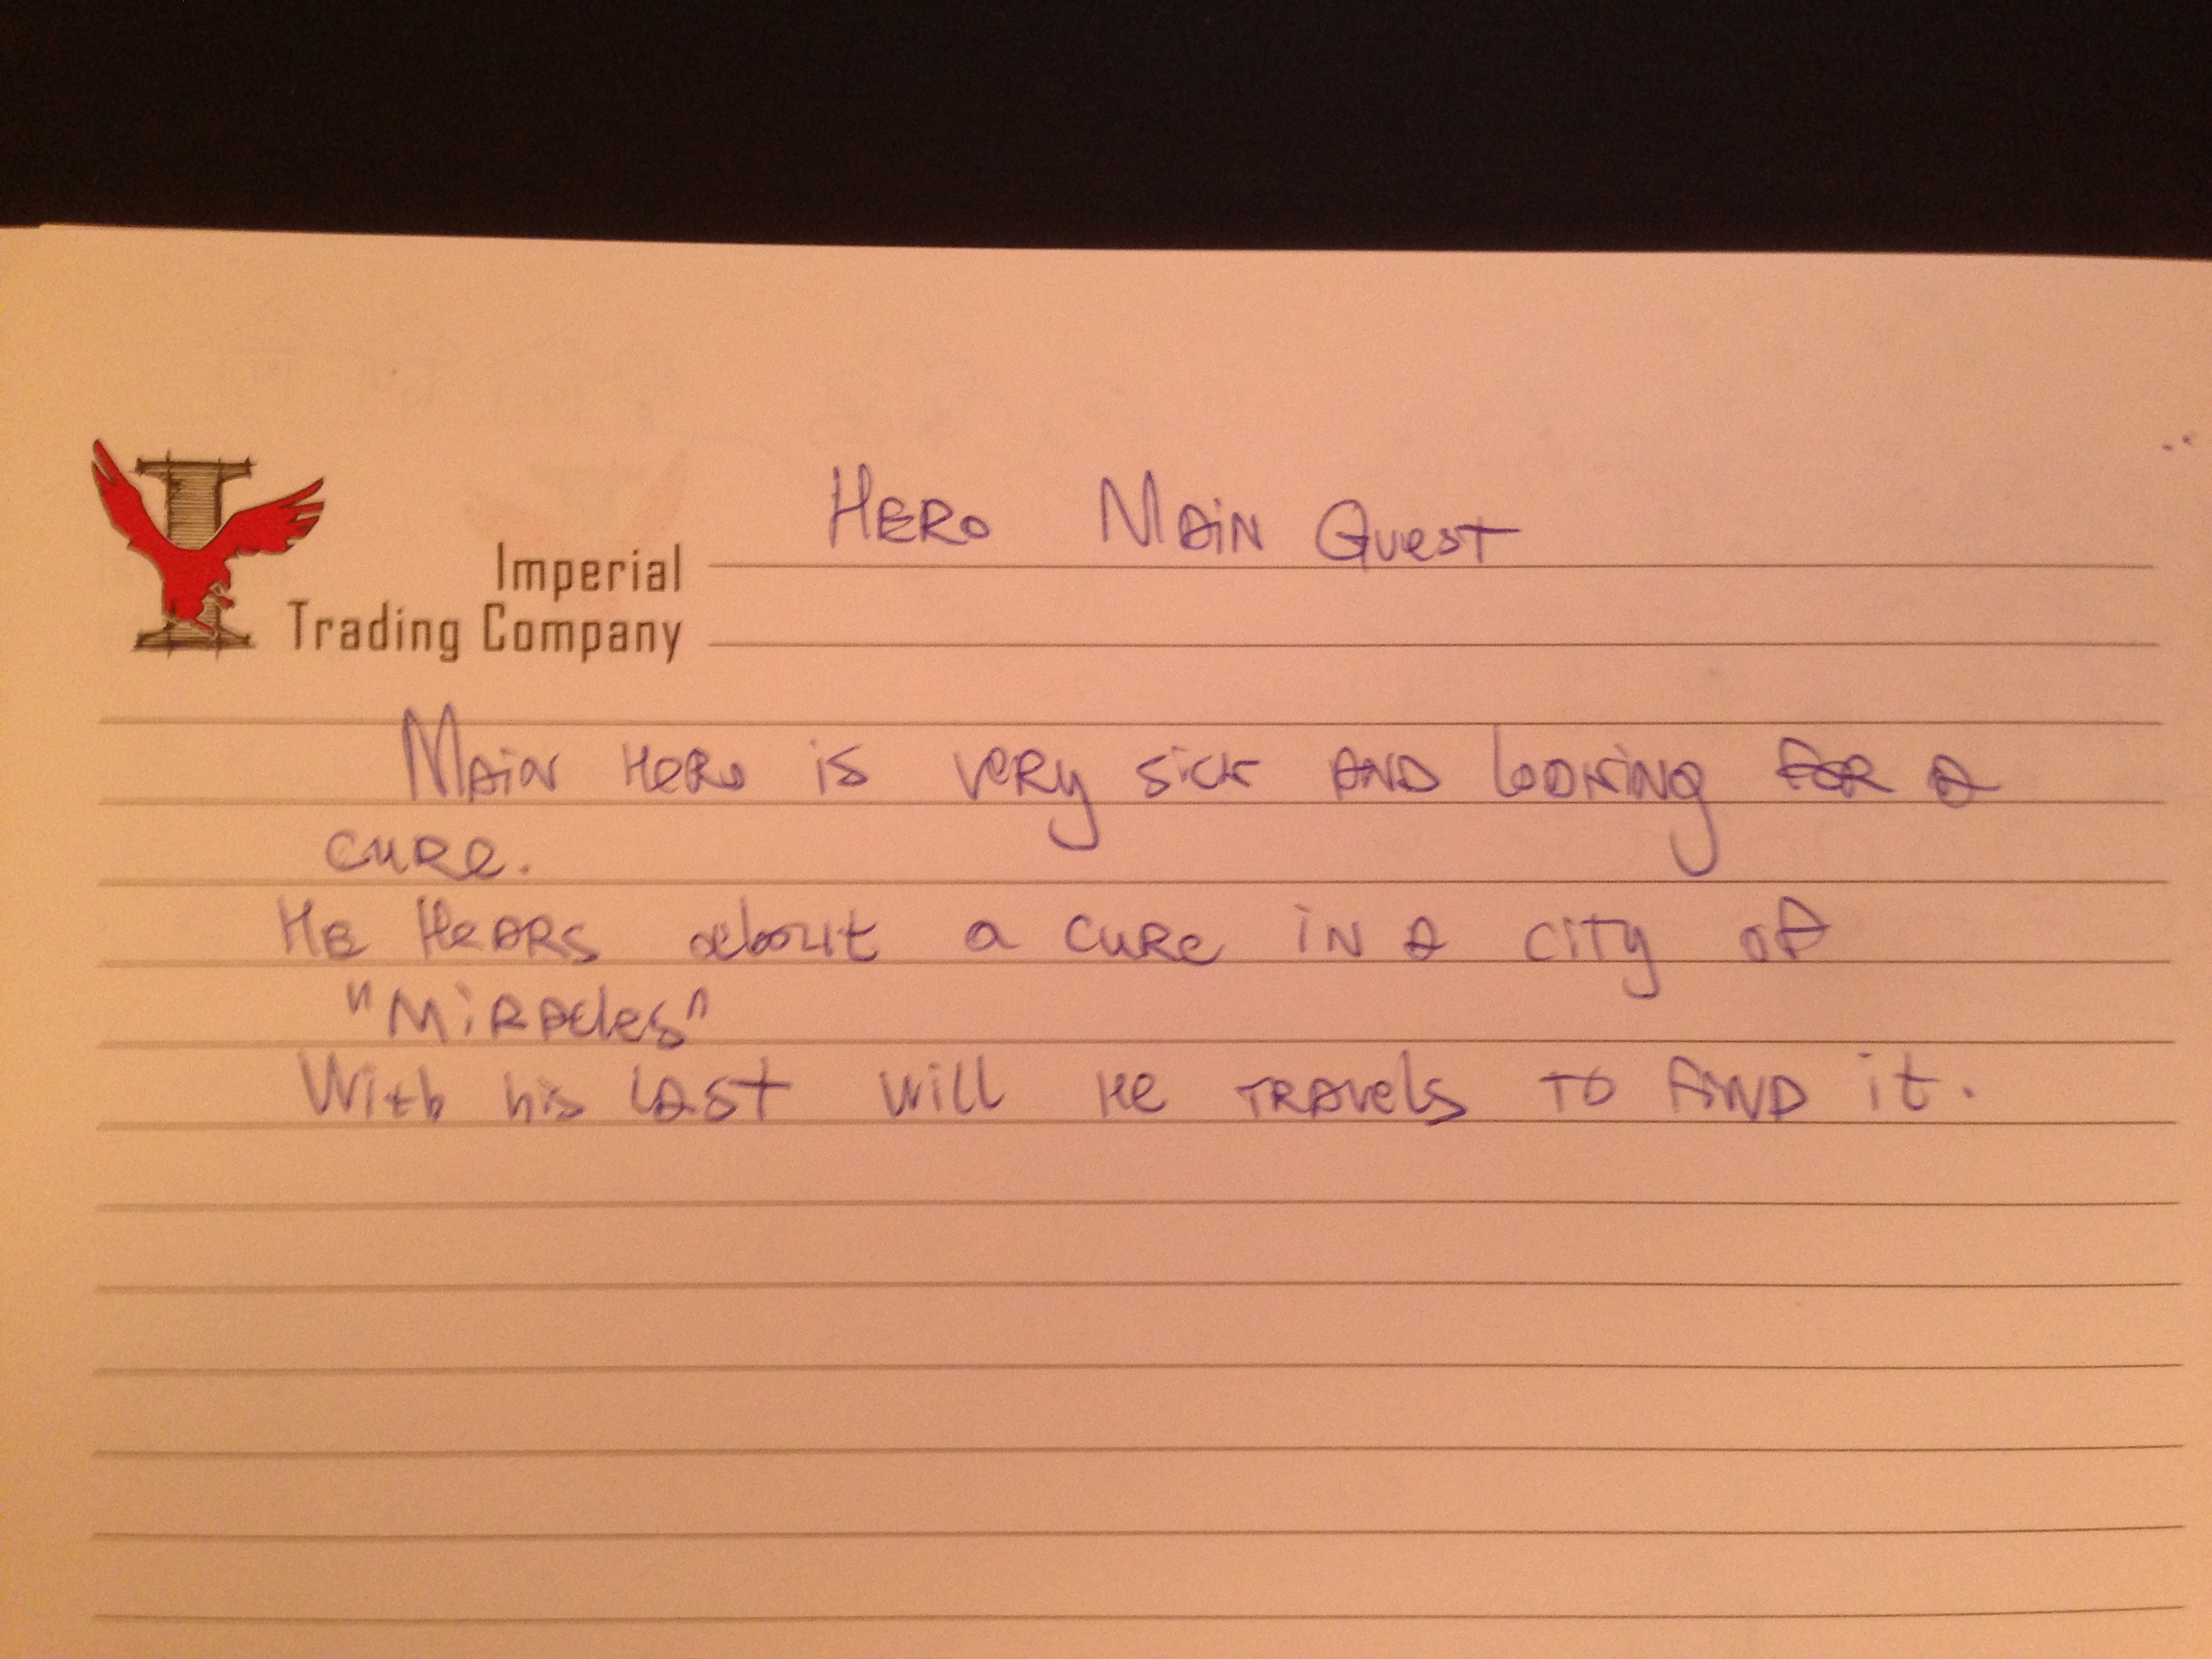 Hero Main Quest
Imperial
Trading Company
Main Hero is very sick AND looking for a
cure.
He HeARs about a cure in a city of
"Miracles"
With his LAST will He TRAvels To find it.